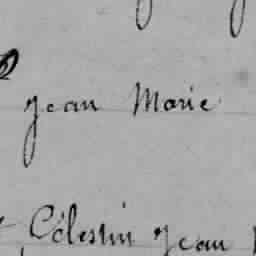 Jean Marie
Célestin Jean